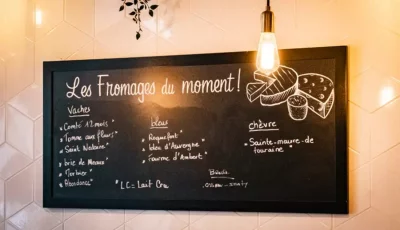 Les Fromages du moment!
Vaches
* Comté 12 mois *
* Tomme aux fleurs *
* Saint Nectaire *
* brie de Meaux
* Morbier *
* Abondance *
bleus
* Roquefort *
* bleu d'Auvergne *
* Fourme d'Ambert
chèvre
* Sainte-maure-de
touraine *
LC = Lait Cru